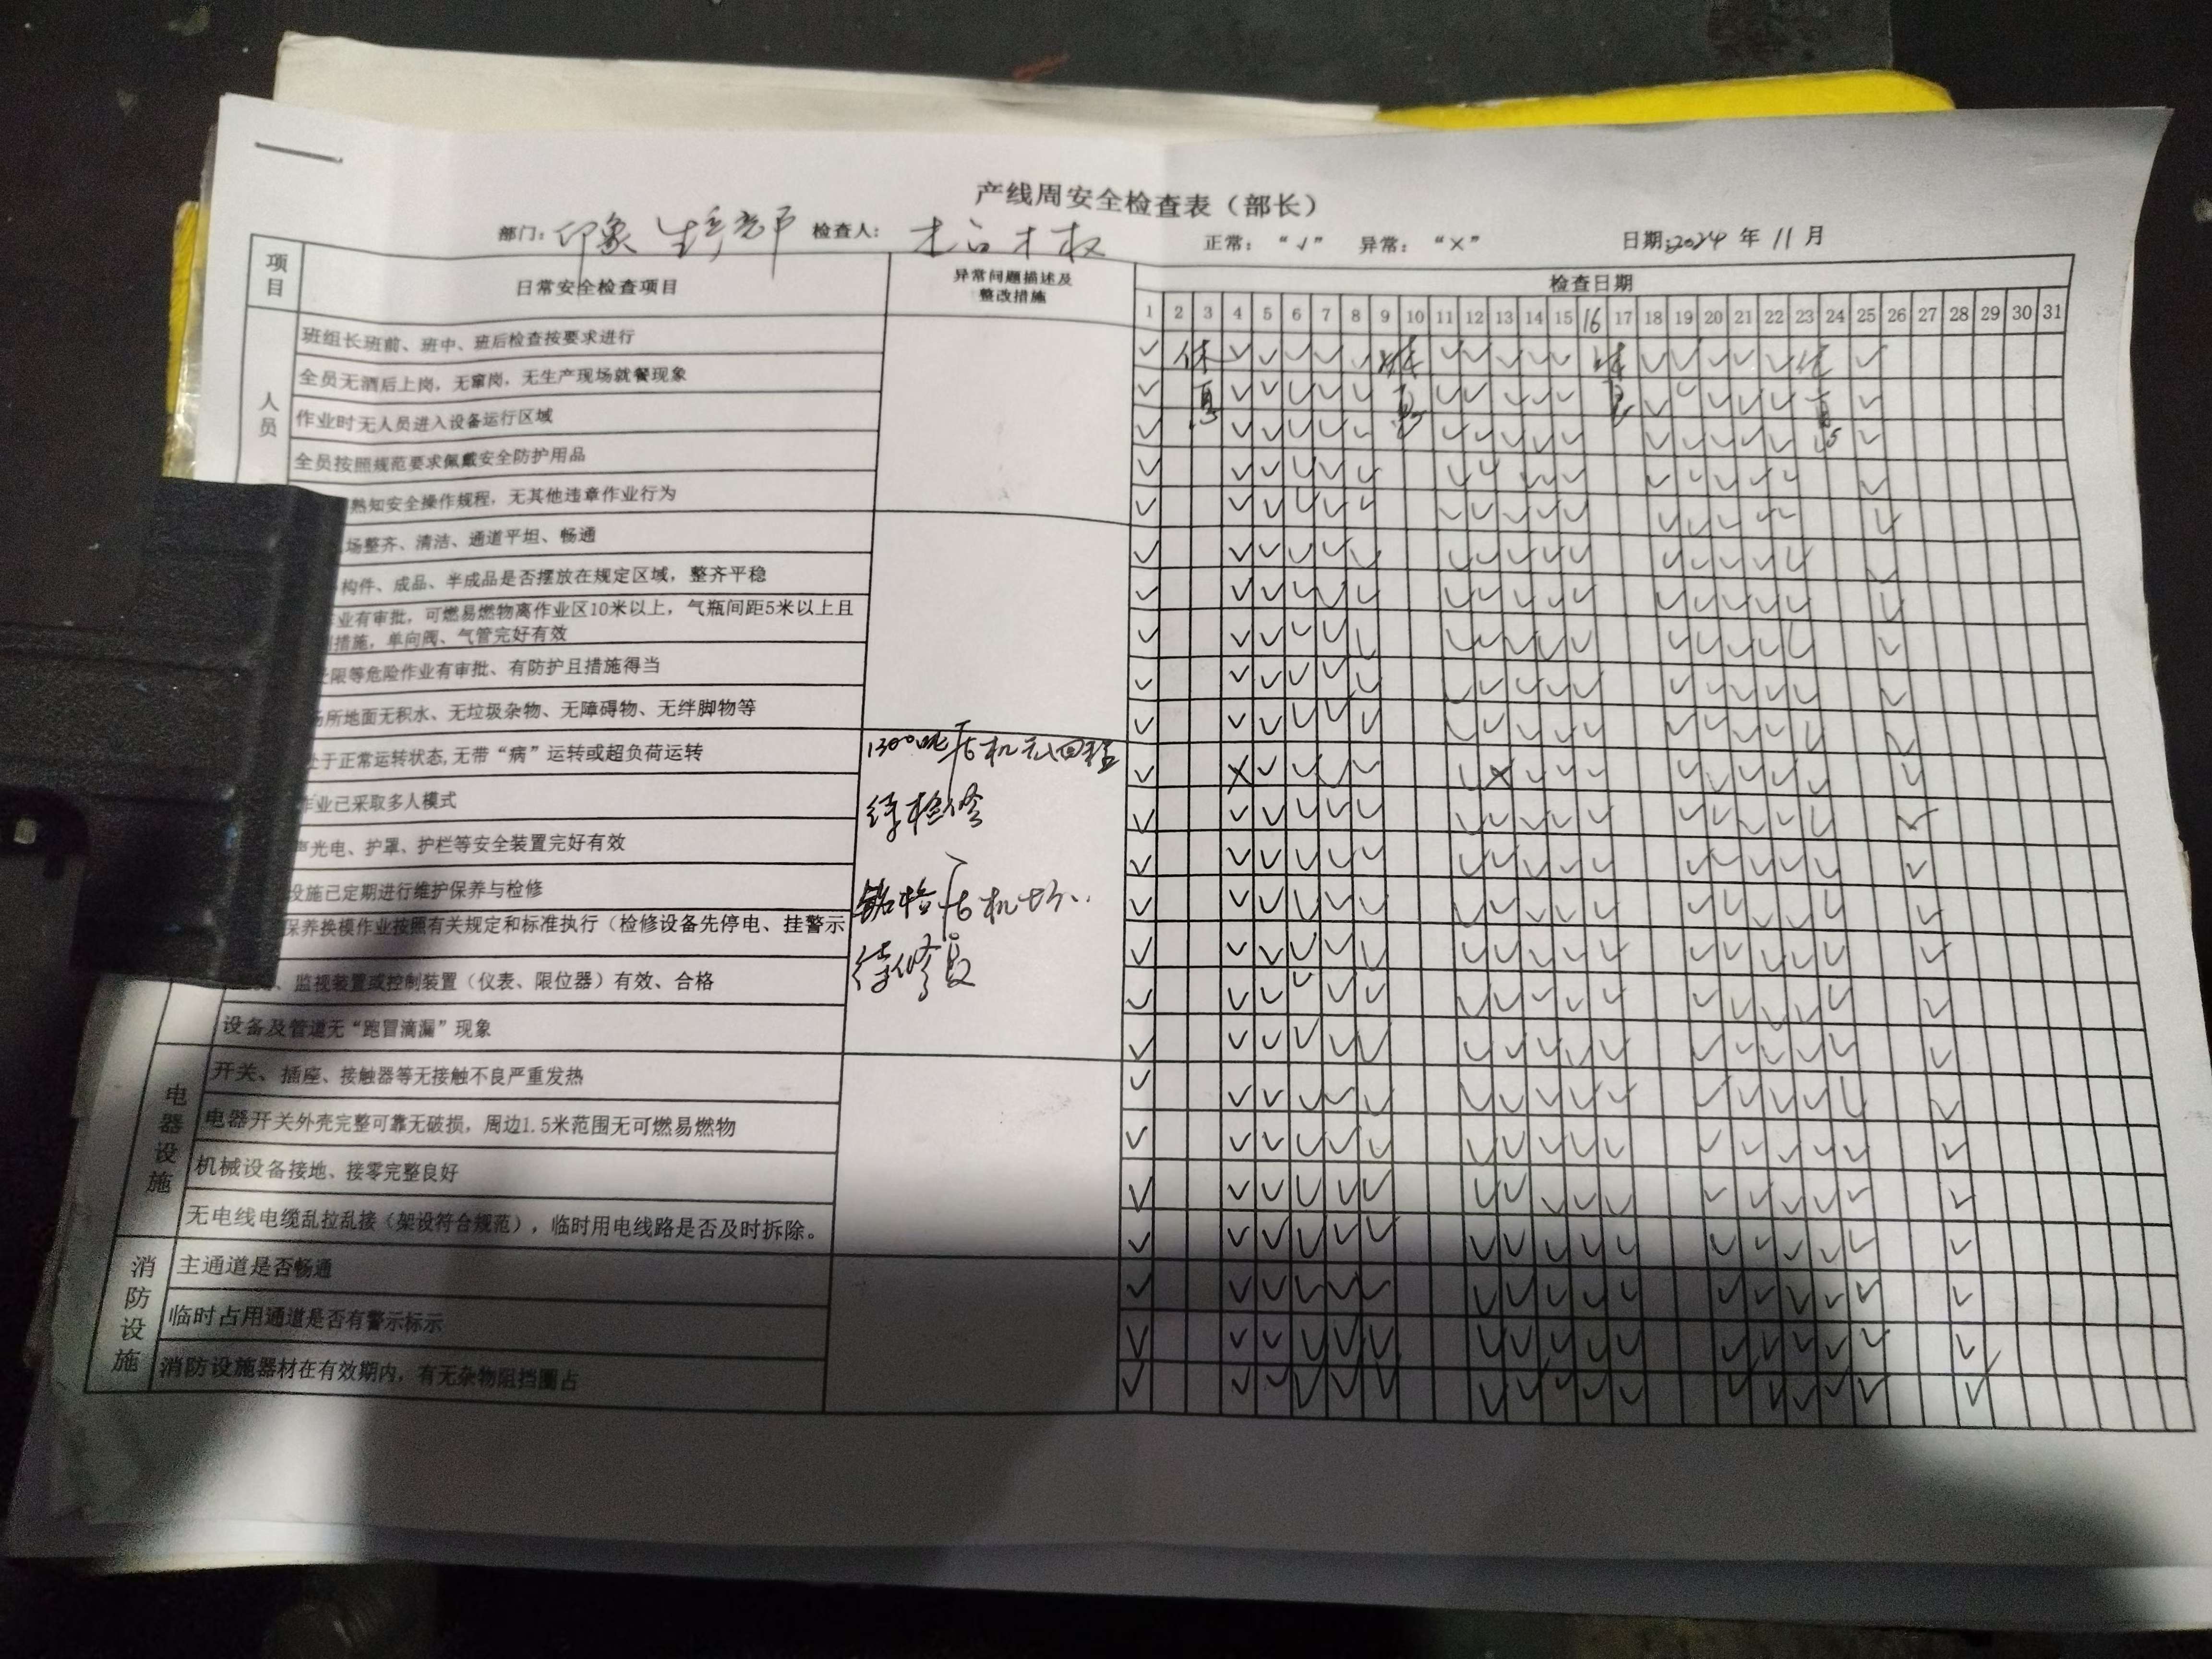 产线周安全检查表（部长）
部门：印象生产部 检查人： 正常：“√” 异常：“×” 日期：2024 年 11 月
项目 日常安全检查项目 异常问题描述及整改措施 检查日期
1 2 3 4 5 6 7 8 9 10 11 12 13 14 15 16 17 18 19 20 21 22 23 24 25 26 27 28 29 30 31
人员
班组长班前、班中、班后检查按要求进行
休息 休息 休息 休息
全员无酒后上岗，无窜岗，无生产现场就餐现象
作业时无人员进入设备运行区域
全员按照规范要求佩戴安全防护用品
熟知安全操作规程，无其他违章作业行为
场整齐、清洁、通道平坦、畅通
构件、成品、半成品是否摆放在规定区域，整齐平稳
业有审批，可燃易燃物离作业区10米以上，气瓶间距5米以上且
措施，单向阀、气管完好有效
限等危险作业有审批、有防护且措施得当
所地面无积水、无垃圾杂物、无障碍物、无绊脚物等
处于正常运转状态,无带“病”运转或超负荷运转
1300吨压机无回程
待检修
作业已采取多人模式
声光电、护罩、护栏等安全装置完好有效
设施已定期进行维护保养与检修
压机坏..
保养换模作业按照有关规定和标准执行（检修设备先停电、挂警示
待修复
、监视装置或控制装置（仪表、限位器）有效、合格
设备及管道无“跑冒滴漏”现象
电器设施
开关、插座、接触器等无接触不良严重发热
电器开关外壳完整可靠无破损，周边1.5米范围无可燃易燃物
机械设备接地、接零完整良好
无电线电缆乱拉乱接（架设符合规范），临时用电线路是否及时拆除。
消防设施
主通道是否畅通
临时占用通道是否有警示标示
消防设施器材在有效期内，有无杂物阻挡圈占